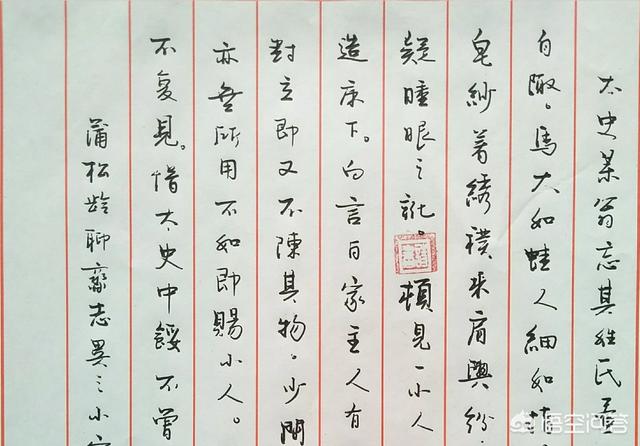 太史某翁忘其姓氏
自陬。馬大如蛙人細如指
皂紗着綉襆来肩輿紛
疑睡眼之訛。頓見一小人
造床下。白言百家主人有
對立即又不陳其物。少間
亦無所用不如即賜小人。
不复見。惜太史中餒不曾
蒲松龄聊齋志異之小官
悟空问答